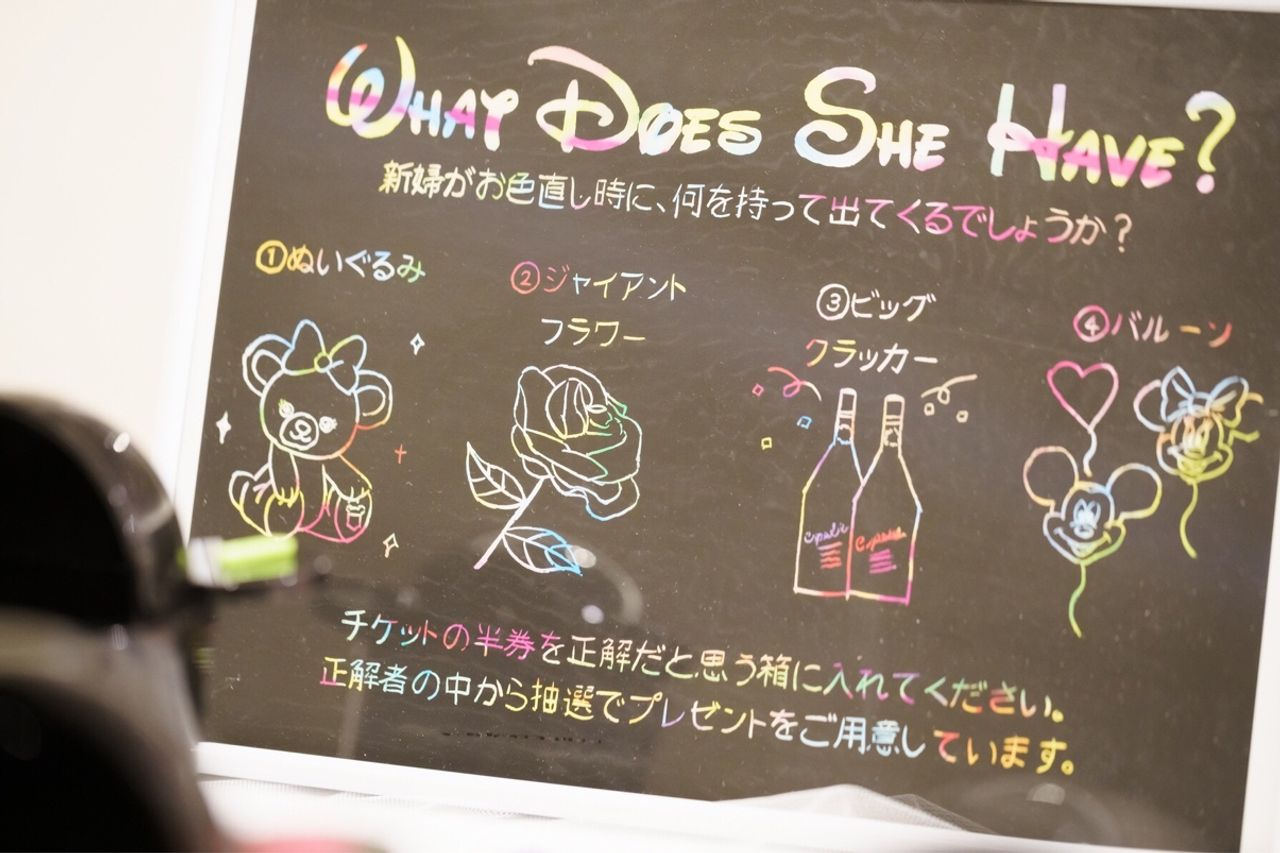 WHAT DOES SHE HAVE?
新婦がお色直し時に、何を持って出てくるでしょうか?
①ぬいぐるみ
②ジャイアント
フラワー
③ビッグ
クラッカー
④バルーン
チケットの半券を正解だと思う箱に入れてください。
正解者の中から抽選でプレゼントをご用意しています。